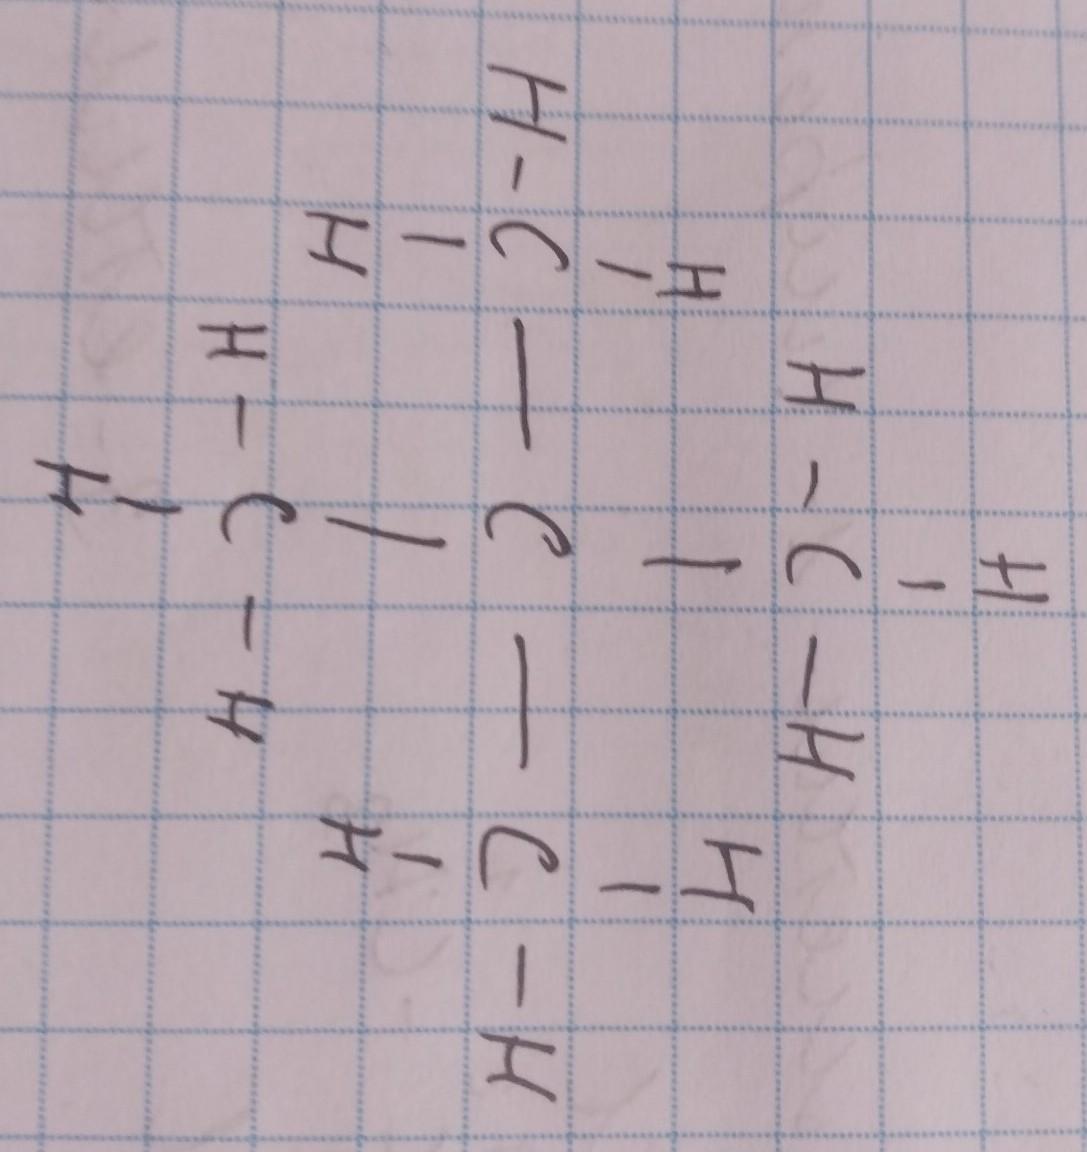 H
|
H - C - H
H | H
| |
H - C — C — C - H
| | |
H H
H - C - H
|
H